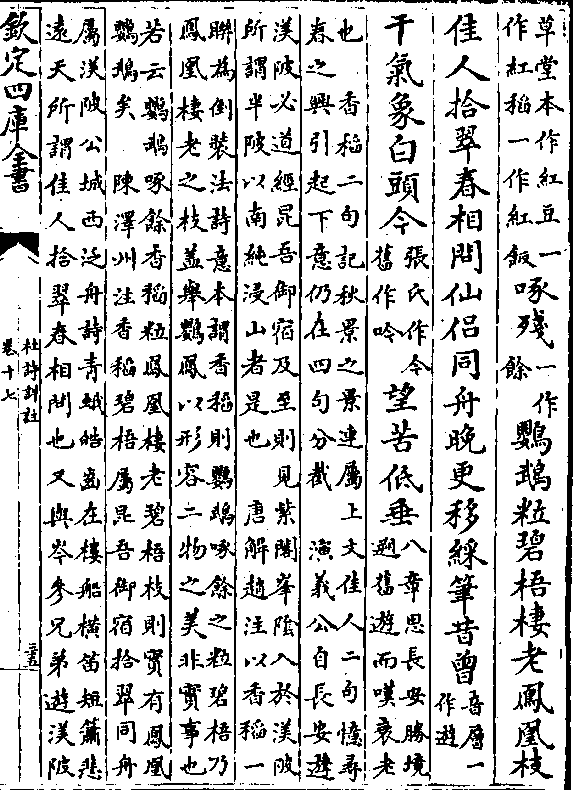 草堂本作紅豆一
作紅稻一作紅飯
啄殘
一作
餘
鸚鵡粒碧梧棲老鳳凰枝
佳人拾翠春相問仙侣同舟晚更移綵筆昔曾
音層一
作遊
干氣象白頭今
張氏作今
舊作吟
望苦低垂
八章思長安勝境
遡舊遊而嘆衰老
也　香稻二句記秋景之景連屬上文佳人二句憶尋
春之興引起下意仍在四句分截　演義公自長安遊
渼陂必道經昆吾御宿及至則見紫閣峯陰入於渼陂
所謂半陂以南純浸山者是也　唐解趙注以香稻一
聯為倒裝法詩意本謂香稻則鸚鵡啄餘之粒碧梧乃
鳳凰棲老之枝葢舉鸚鳳以形容二物之美非實事也
若云鸚鵡啄餘香稻粒鳳凰棲老碧梧枝則實有鳳凰
鸚鵡矣　陳澤州注香稻碧梧屬昆吾御宿拾翠同舟
屬渼陂公城西泛舟詩青蛾皓齒在樓船橫笛短簫悲
遠天所謂佳人拾翠春相問也又與岑參兄弟遊渼陂
欽定四庫全書
杜詩詳註
卷十七
三五